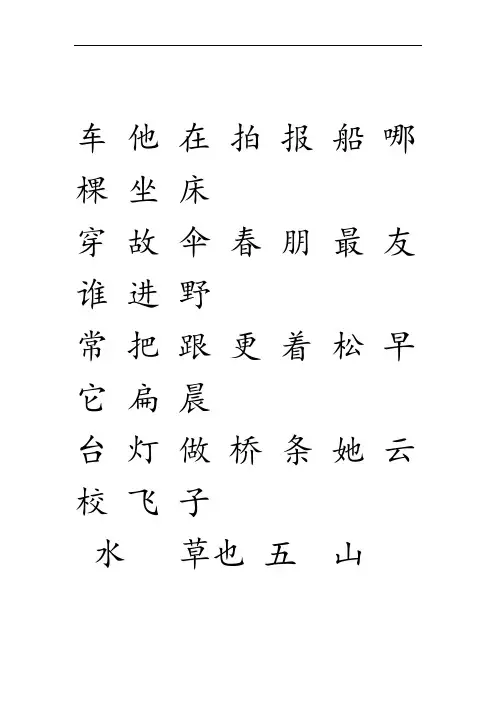 车 他 在 拍 报 船 哪
棵 坐 床
穿 故 伞 春 朋 最 友
谁 进 野
常 把 跟 更 着 松 早
它 扁 晨
台 灯 做 桥 条 她 云
校 飞 子
水 草也 五 山